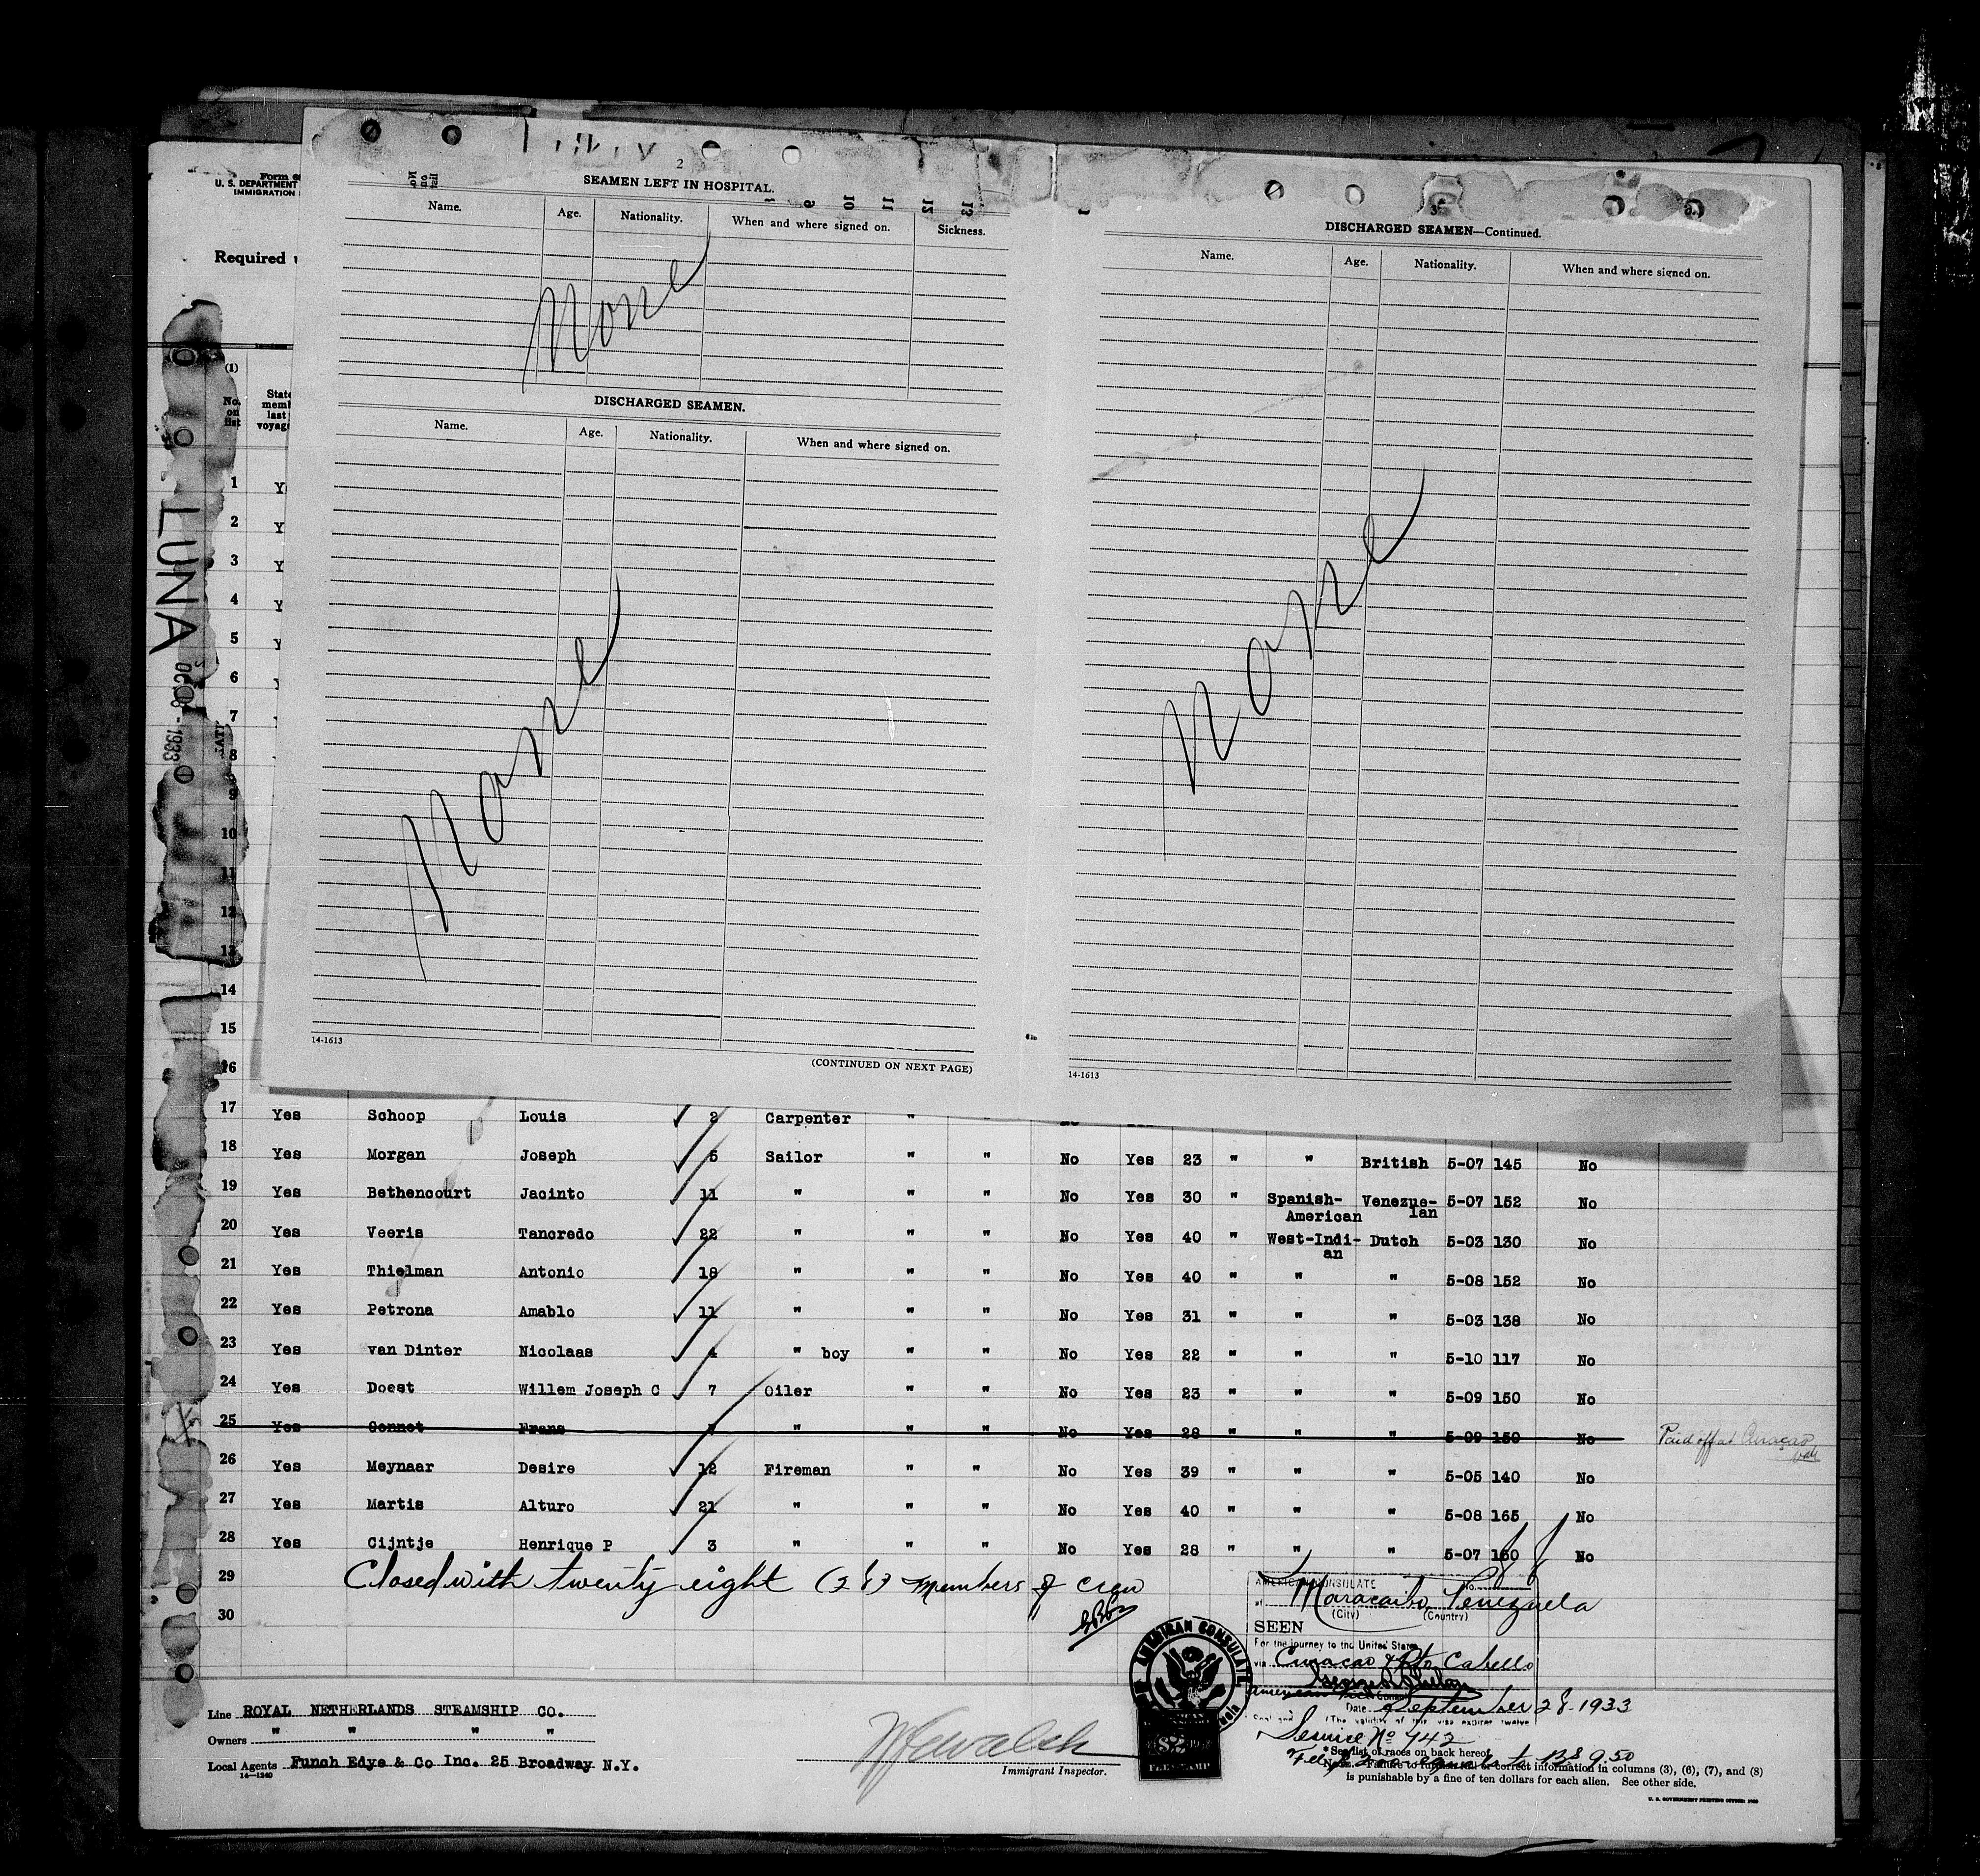 Form
U. S. DEPARTMENT
IMMIGRATION
Required
(1)
No. on list
State
memb
last
voyage
LUNA
1933
2
SEAMEN LEFT IN HOSPITAL.
Name. Age. Nationality. When and where signed on. Sickness.
None
DISCHARGED SEAMEN.
Name. Age. Nationality. When and where signed on.
None
14-1613
(CONTINUED ON NEXT PAGE)
3
DISCHARGED SEAMEN—Continued.
Name. Age. Nationality. When and where signed on.
None
14-1613
1 Y
2 Y
3 Y
4 Y
5 Y
6
7
8
9
10
11
12
13
14
15
16
17 Yes Schoop Louis 2 Carpenter "
18 Yes Morgan Joseph 5 Sailor " " No Yes 23 " " British 5-07 145 No
19 Yes Bethencourt Jacinto 11 " " " No Yes 30 " Spanish-American Venezue-lan 5-07 152 No
20 Yes Veeris Tancredo 22 " " " No Yes 40 " West-Indi-an Dutch 5-03 130 No
21 Yes Thielman Antonio 18 " " " No Yes 40 " " " 5-08 152 No
22 Yes Petrona Amablo 11 " " " No Yes 31 " " " 5-03 138 No
23 Yes van Dinter Nicolaas 4 " boy " " No Yes 22 " " " 5-10 117 No
24 Yes Doest Willem Joseph C 7 Oiler " " No Yes 23 " " " 5-09 150 No
25 Yes Connet Frans " " " No Yes 28 " " " 5-09 150 No Paid off at Curaçao
26 Yes Meynaar Desire 12 Fireman " " No Yes 39 " " " 5-05 140 No
27 Yes Martis Alturo 21 " " " No Yes 40 " " " 5-08 165 No
28 Yes Cijntje Henrique P 3 " " " No Yes 28 " " " 5-07 160 No
29 Closed with twenty eight (28) members of crew
30
AMERICAN CONSULATE
at Maracaibo, Venezuela
(City) (Country)
SEEN
For the journey to the United States
via Curacao & Pto Cabello
Date September 28-1933
Service No 442
AMERICAN CONSULATE
Line ROYAL NETHERLANDS STEAMSHIP CO.
Owners " " " "
Local Agents Funch Edye & Co Inc. 25 Broadway N.Y.
14—1240
Immigrant Inspector.
See list of races on back hereof.
NOTE.—Failure to furnish full or correct information in columns (3), (6), (7), and (8)
is punishable by a fine of ten dollars for each alien. See other side.
U. S. GOVERNMENT PRINTING OFFICE